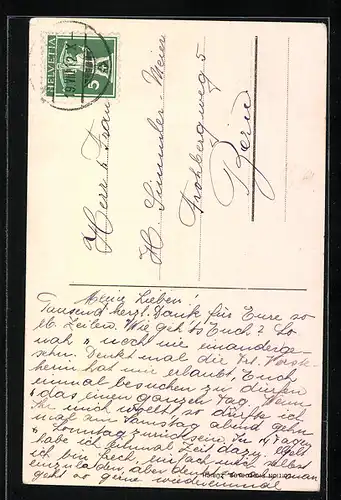 HELVETIA
5
Herr & Frau
H. Sümmler-Meier
Frohbergweg 5
Bern
Meine Lieben!
Tausend herzl. Dank für Eure so
lb. Zeilen. Wie geht's Euch? So
nah & noch nie einander ge-
sehn. Denkt mal die Frl. Vorste-
herin hat mir erlaubt, Euch
einmal besuchen zu dürfen
& das einen ganzen Tag. Wenn
Ihr mich wollt, so dürfte ich
mal am Samstag abend gehn
& Sonntag zurück sein. In 14 Tagen
habe ich einmal Zeit dazu. Gelt
ich bin frech, einfach mich selbst
einzuladen, aber man
geht so gerne wiedereinmal